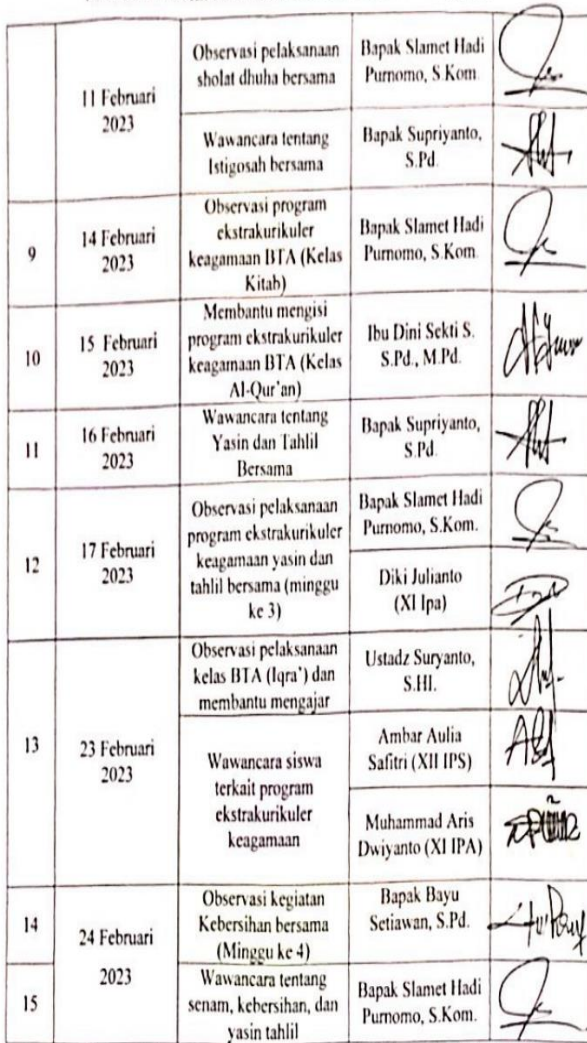 11 Februari
2023
Observasi pelaksanaan
sholat dhuha bersama
Bapak Slamet Hadi
Purnomo, S.Kom.
Wawancara tentang
Istigosah bersama
Bapak Supriyanto,
S.Pd.
9
14 Februari
2023
Observasi program
ekstrakurikuler
keagamaan BTA (Kelas
Kitab)
Bapak Slamet Hadi
Purnomo, S.Kom.
10
15 Februari
2023
Membantu mengisi
program ekstrakurikuler
keagamaan BTA (Kelas
Al-Qur'an)
Ibu Dini Sekti S.
S.Pd., M.Pd.
11
16 Februari
2023
Wawancara tentang
Yasin dan Tahlil
Bersama
Bapak Supriyanto,
S.Pd.
12
17 Februari
2023
Observasi pelaksanaan
program ekstrakurikuler
keagamaan yasin dan
tahlil bersama (minggu
ke 3)
Bapak Slamet Hadi
Purnomo, S.Kom.
Diki Julianto
(XI Ipa)
13
23 Februari
2023
Observasi pelaksanaan
kelas BTA (Iqra') dan
membantu mengajar
Ustadz Suryanto,
S.HI.
Wawancara siswa
terkait program
ekstrakurikuler
keagamaan
Ambar Aulia
Safitri (XII IPS)
Muhammad Aris
Dwiyanto (XI IPA)
14
24 Februari
2023
Observasi kegiatan
Kebersihan bersama
(Minggu ke 4)
Bapak Bayu
Setiawan, S.Pd.
15
Wawancara tentang
senam, kebersihan, dan
yasin tahlil
Bapak Slamet Hadi
Purnomo, S.Kom.